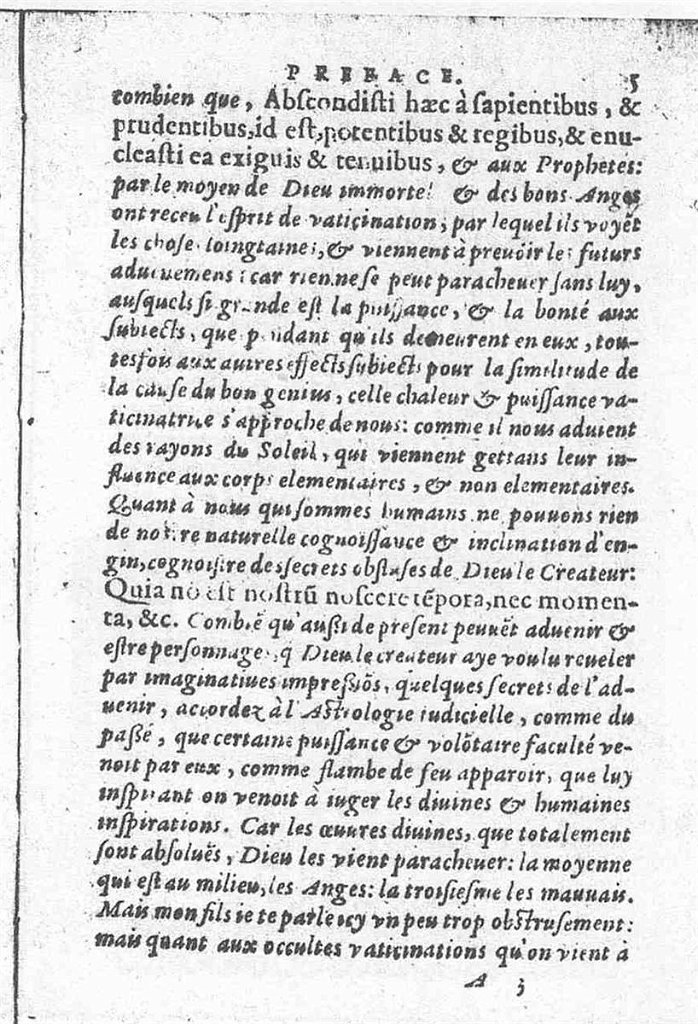 PREFACE. 5
combien que, Abſcondiſti hæc à ſapientibus, &
prudentibus, id eſt, potentibus & regibus, & enu-
cleaſti ea exiguis & tenuibus, & aux Prophetes:
par le moyen de Dieu immortel & des bons Anges
ont receu l'eſprit de vaticination, par lequel ils voyẽt
les choſes loingtaines, & viennent à preuoir les futurs
aduenemens: car rien ne ſe peut paracheuer ſans luy,
auſquels ſi grande eſt la puiſſance, & la bonté aux
ſubiects, que pendant qu'ils demeurent en eux, tou-
tesfois aux autres effects ſubiects pour la ſimilitude de
la cauſe du bon genius, celle chaleur & puiſſance va-
ticinatrice s'approche de nous: comme il nous aduient
des rayons du Soleil, qui viennent gettans leur in-
fluence aux corps elementaires, & non elementaires.
Quant à nous qui ſommes humains ne pouuons rien
de noſtre naturelle cognoiſſance & inclination d'en-
gin, cognoiſtre des ſecrets obſtuſes de Dieu le Createur:
Quia nō eſt noſtrū noſcere tēpora, nec momen-
ta, &c. Combiẽ qu'auſsi de preſent peuuẽt aduenir &
eſtre perſonnages, q̃ Dieu le createur aye voulu reueler
par imaginatiues impreſsiõs, quelques ſecrets de l'ad-
uenir, accordez à l'Aſtrologie iudicielle, comme du
paſſé, que certaine puiſſance & volõtaire faculté ve-
noit par eux, comme flambe de feu apparoir, que luy
inſpirant on venoit à iuger les diuines & humaines
inſpirations. Car les œuures diuines, que totalement
ſont abſoluës, Dieu les vient paracheuer: la moyenne
qui eſt au milieu, les Anges: la troiſieſme les mauuais.
Mais mon fils ie te parle icy vn peu trop obſtruſement:
mais quant aux occultes vaticinations qu'on vient à
A 3